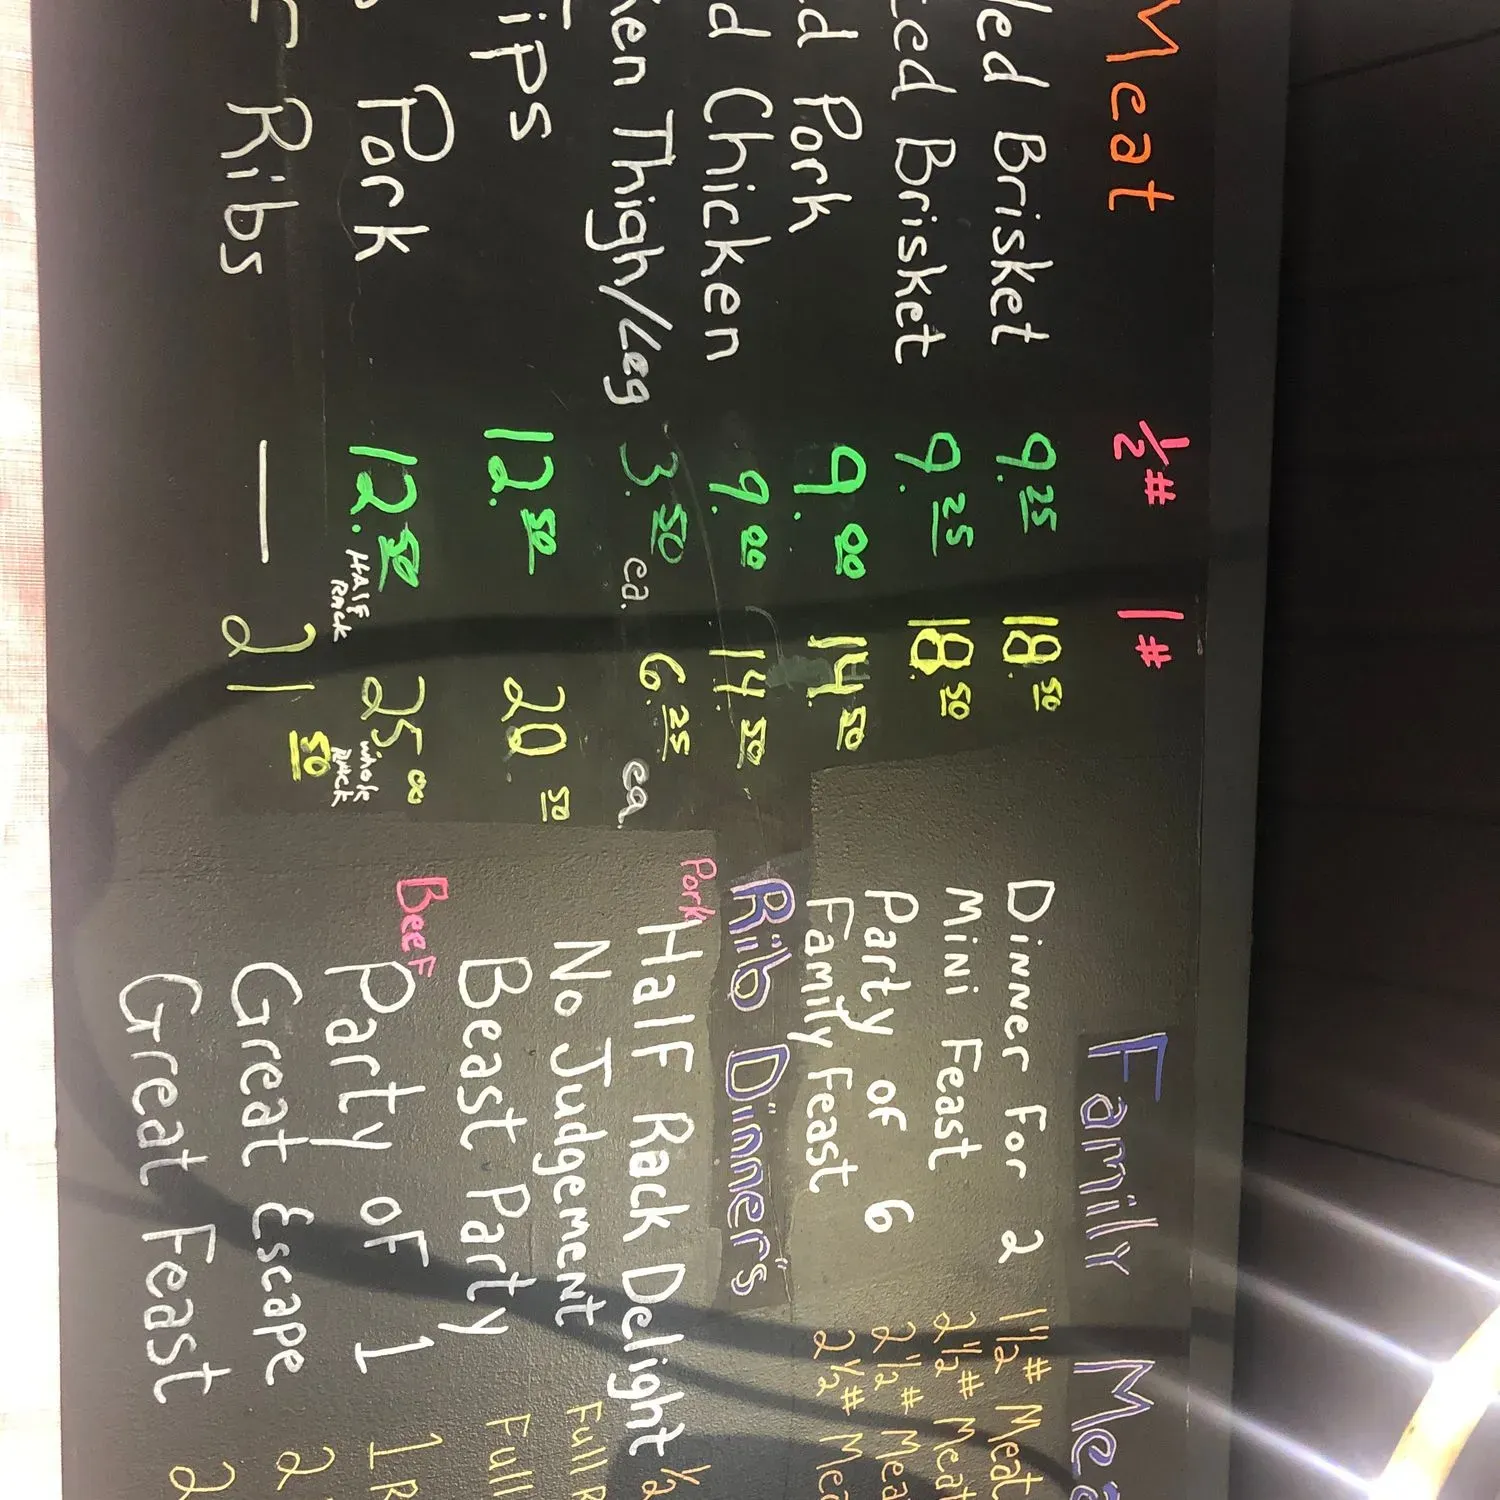 Meat ½# 1#
led Brisket 9.25 18.50
ced Brisket 9.25 18.50
d Pork 9.00 14.50
d Chicken 9.00 14.50
en Thigh/Leg 3.50 ea. 6.25 ea.
Tips 12.50 20.50
Pork 12.50 HALF RACK 25.00 whole RACK
F Ribs — 21.50
Family Mea
Dinner For 2 1½# Meat
Mini Feast 2½# Meat
Party of 6 2½# Mea
Family Feast 2½# Mea
Rib Dinners
Pork
Half Rack Delight 1/2
No Judgement Full R
Beast Party Full
Beef
Party of 1 1 R
Great Escape 2
Great Feast 2